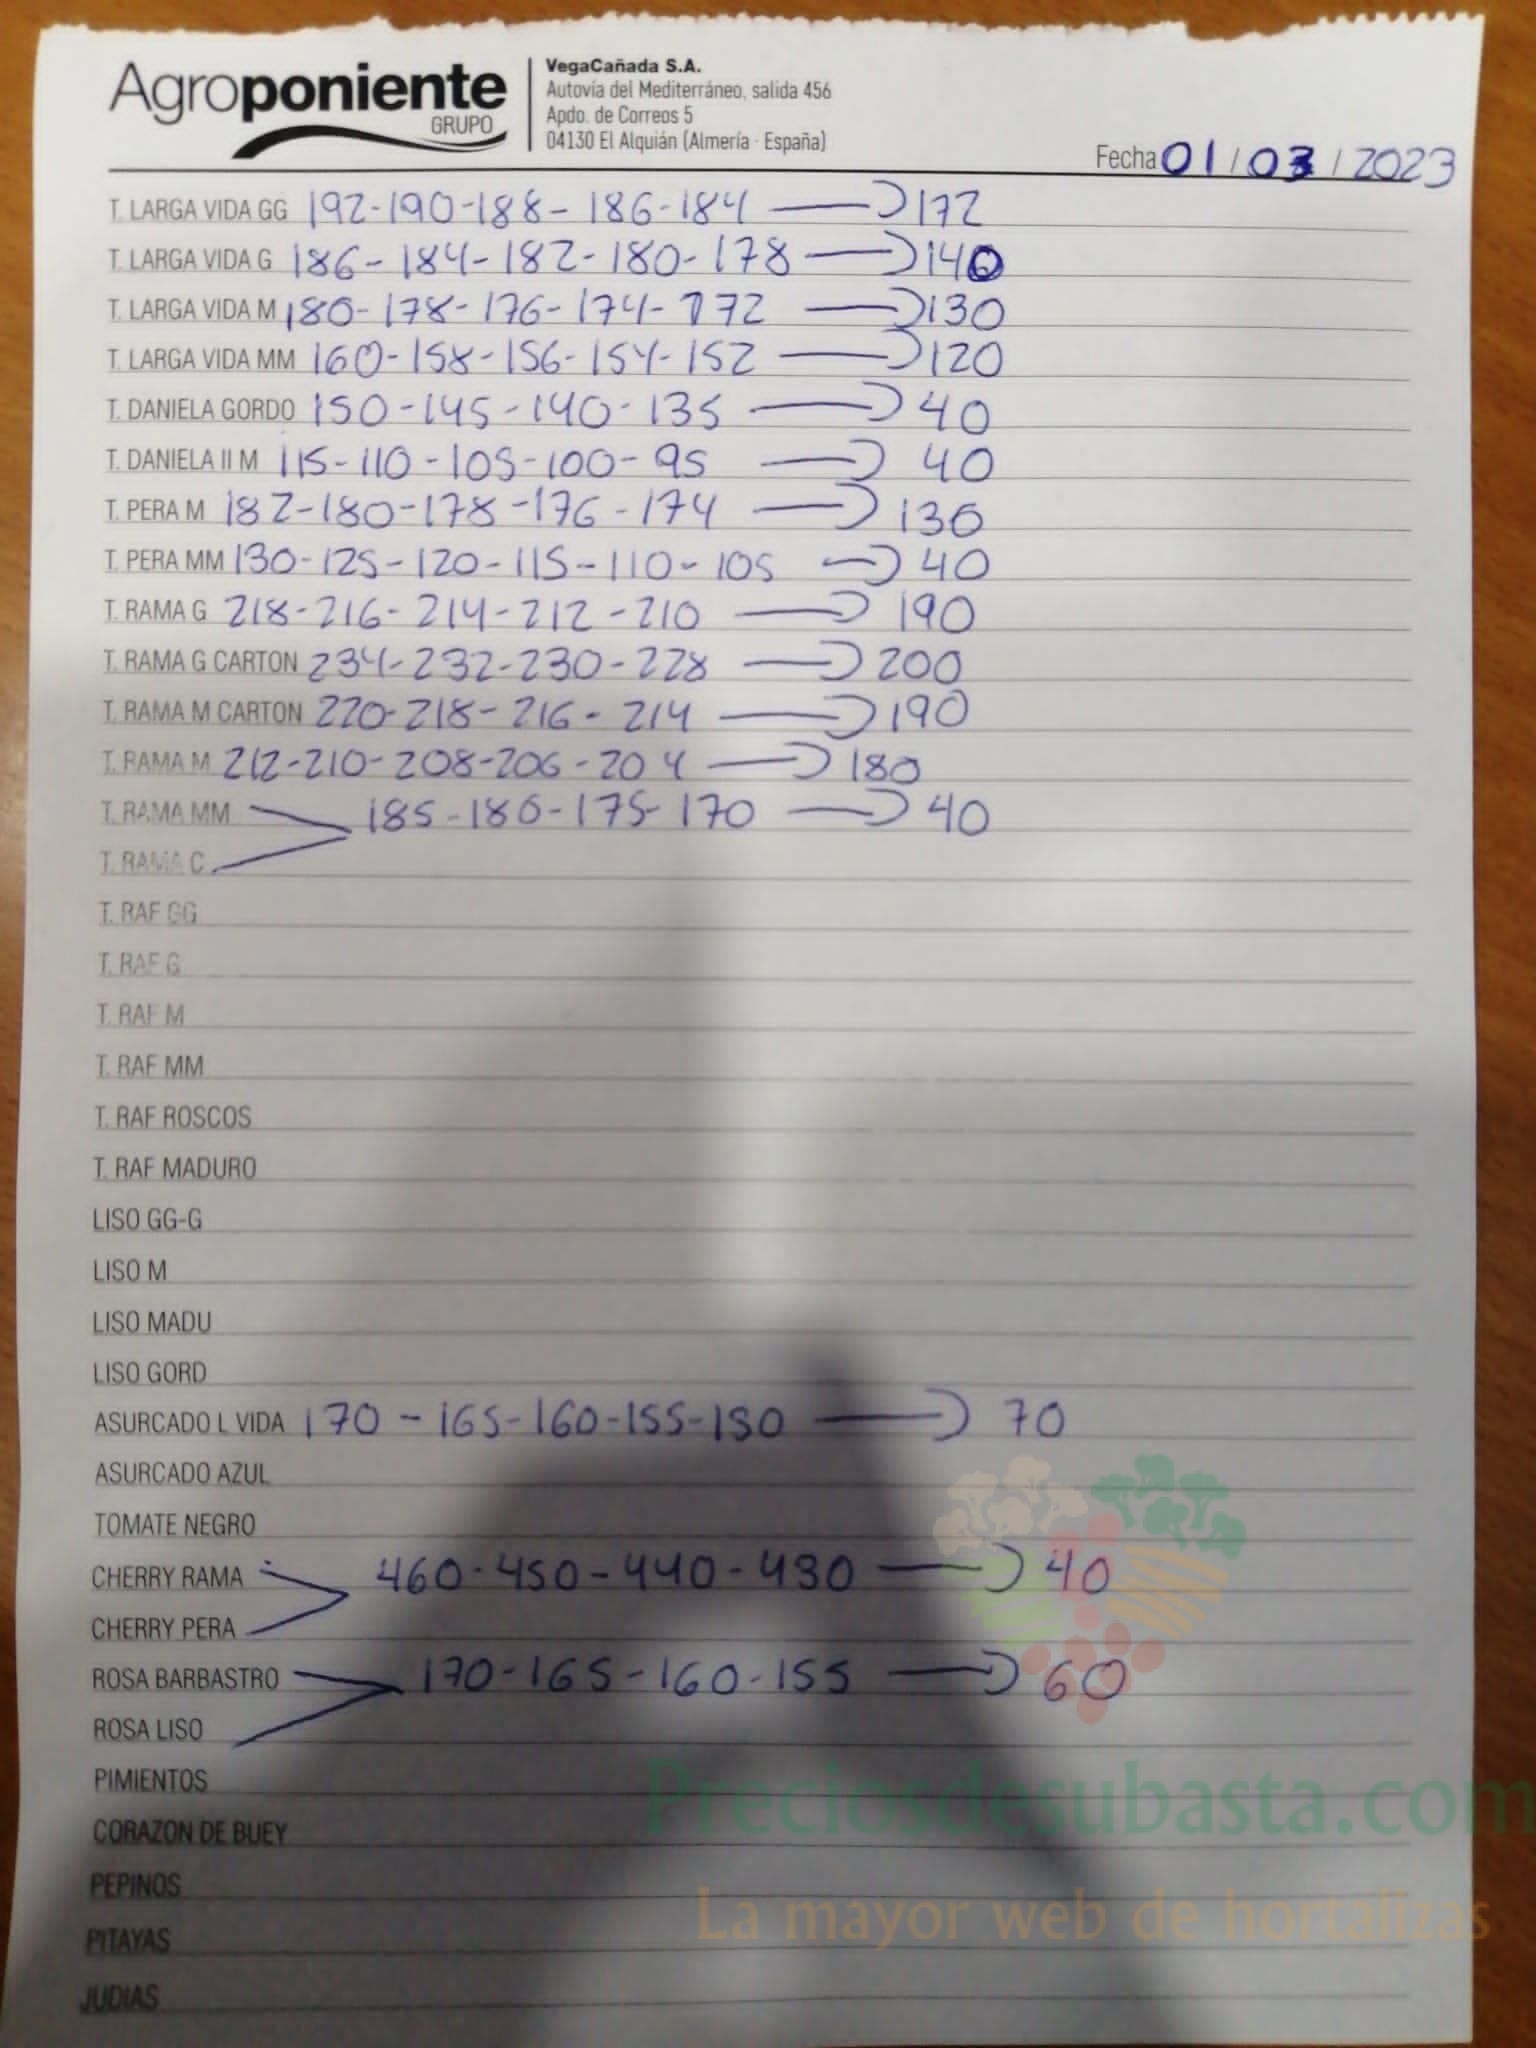 Agroponiente
GRUPO
VegaCañada S.A.
Autovía del Mediterráneo, salida 456
Apdo. de Correos 5
04130 El Alquián (Almería - España)
Fecha 01/03/2023
T. LARGA VIDA GG 192-190-188-186-184 172
T. LARGA VIDA G 186-184-182-180-178 140
T. LARGA VIDA M 180-178-176-174-172 130
T. LARGA VIDA MM 160-158-156-154-152 120
T. DANIELA GORDO 150-145-140-135 40
T. DANIELA II M 115-110-105-100-95 40
T. PERA M 182-180-178-176-174 130
T. PERA MM 130-125-120-115-110-105 40
T. RAMA G 218-216-214-212-210 190
T. RAMA G CARTON 234-232-230-228 200
T. RAMA M CARTON 220-218-216-214 190
T. RAMA M 212-210-208-206-204 180
T. RAMA MM 185-180-175-170 40
T. RAMA C
T. RAF GG
T. RAF G
T. RAF M
T. RAF MM
T. RAF ROSCOS
T. RAF MADURO
LISO GG-G
LISO M
LISO MADU
LISO GORD
ASURCADO L VIDA 170-165-160-155-150 70
ASURCADO AZUL
TOMATE NEGRO
CHERRY RAMA 460-450-440-430 40
CHERRY PERA
ROSA BARBASTRO 170-165-160-155 60
ROSA LISO
PIMIENTOS
Preciosdesubasta.com
CORAZON DE BUEY
PEPINOS
La mayor web de hortalizas
PITAYAS
JUDIAS